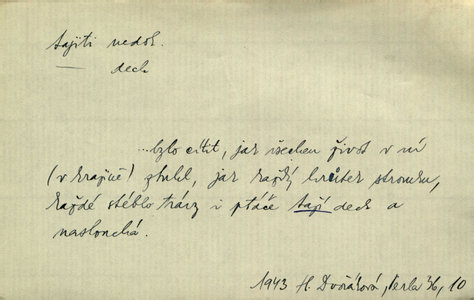 tajiti nedok.
dech
...bylo cítit, jak všechen život v ní
(v krajině) ztuhl, jak každý lístek stromu,
každé stéblo trávy i ptáče tají dech a
naslouchá.
1943 H. Dvořáková, Perla 36, 10